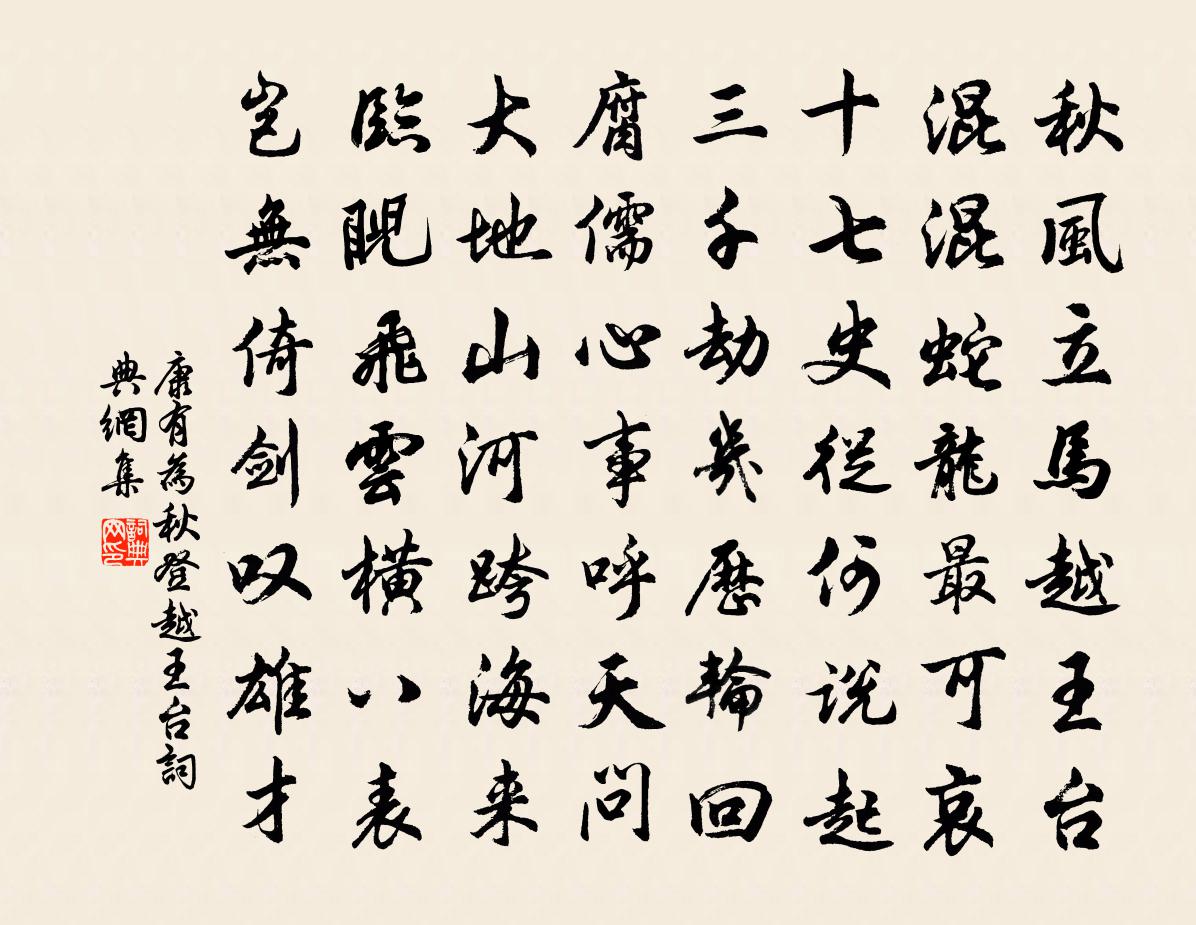 秋風立馬越王台
混混蛇龍最可哀
十七史從何說起
三千劫幾歷輪回
腐儒心事呼天問
大地山河跨海来
臨睨飛雲橫八表
豈無倚劍叹雄才
康有為秋登越王台詞
典網集
詞典
网印